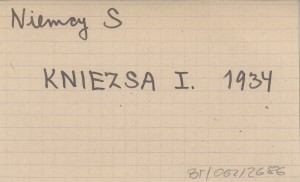 Niemcy S
KNIEZSA I. 1934
BT/002/2686